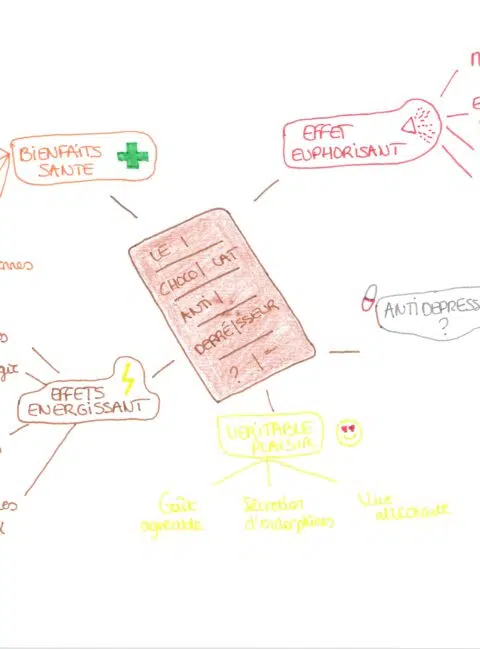 BIENFAITS
SANTE
EFFET
EUPHORISANT
LE
CHOCO/LAT
ANTI
DEPRE/SSEUR
?
ANTIDEPRESS
?
EFFETS
ENERGISSANT
VERITABLE
PLAISIR
Goût
agréable
Sécrétion
d'endorphines
Vue
alléchante